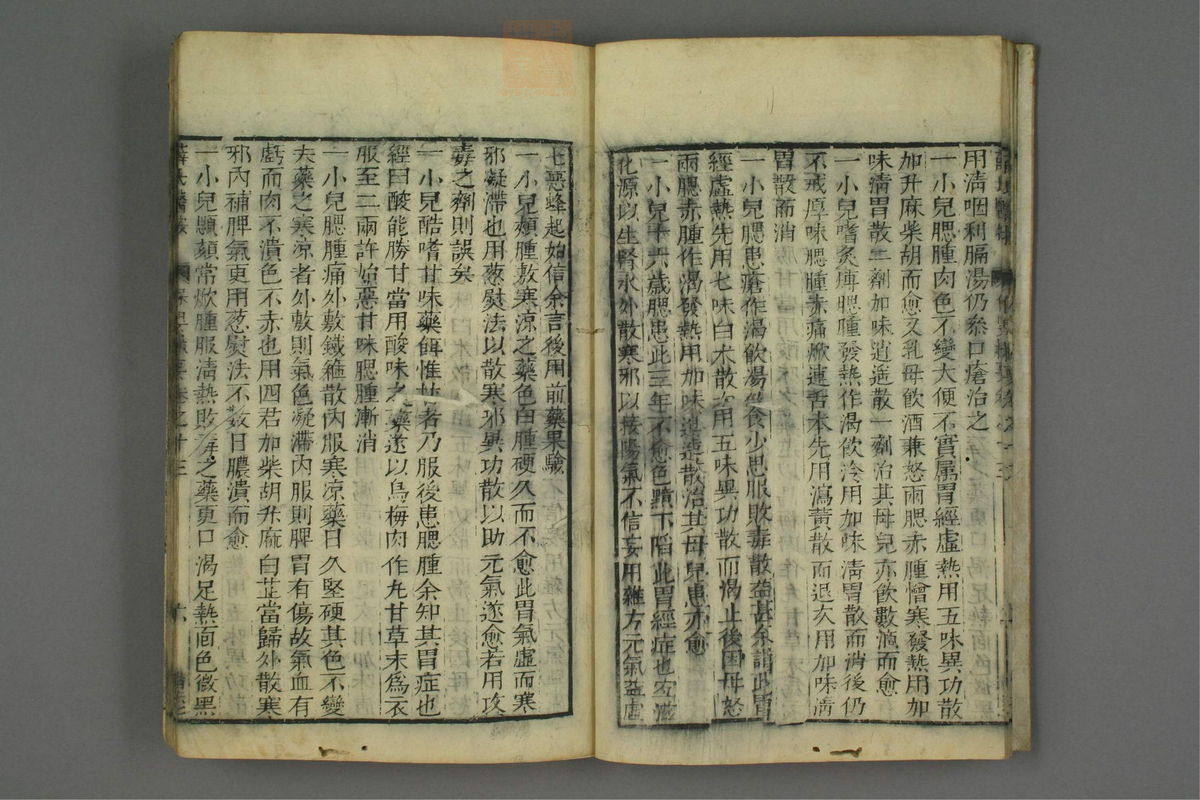 用清咽利膈湯仍參口瘡治之
一小兒腮腫肉色不變大便不實屬胃經虛熱用五味異功散
加升麻柴胡而愈又乳母飲酒兼怒兩腮赤腫憎寒發熱用加
味清胃散二劑加味逍遙散一劑治其母兒亦飲數滴而愈
一小兒嗜炙煿腮腫發熱作渴飲冷用加味清胃散而消後仍
不戒厚味腮腫赤痛焮連舌本先用瀉黃散而退次用加味清
胃散而消
一小兒腮患瘡作渴飲湯飲食少思服敗毒散益甚余謂此胃
經虛熱先用七味白木散次用五味異功散而渴止後因母怒
兩腮赤腫作渴發熱用加味逍遙散治其母兒患亦愈
一小兒十六歲腮患此三年不愈色黯下陷此胃經症也宜滋
化源以生腎水外散寒邪以接陽氣不信妄用雜方元氣益虛
七惡蜂起始信余言後用前藥果驗
一小兒頰腫敷寒涼之藥色白腫硬久而不愈此胃氣虛而寒
邪凝滯也用葱熨法以散寒邪異功散以助元氣遂愈若用攻
毒之劑則誤矣
一小兒酷嗜甘味藥餌惟甘者乃服後患腮腫余知其胃症也
經曰酸能勝甘當用酸味之藥遂以烏梅肉作丸甘草末為衣
服至二兩許始惡甘味腮腫漸消
一小兒腮腫痛外敷鐵箍散內服寒凉藥日久堅硬其色不變
夫藥之寒涼者外敷則氣色凝滯內服則脾胃有傷故氣血有
虧而肉不潰色不赤也用四君加柴胡升麻白芷當歸外散寒
邪內補脾氣更用葱熨法不数日膿潰而愈
一小兒顋頦常焮腫服清熱敗毒之藥更口渴足熱面色微黑
卷之十三